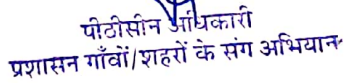 पीठीसीन अधिकारी
प्रशासन गाँवों/शहरों के संग अभियान